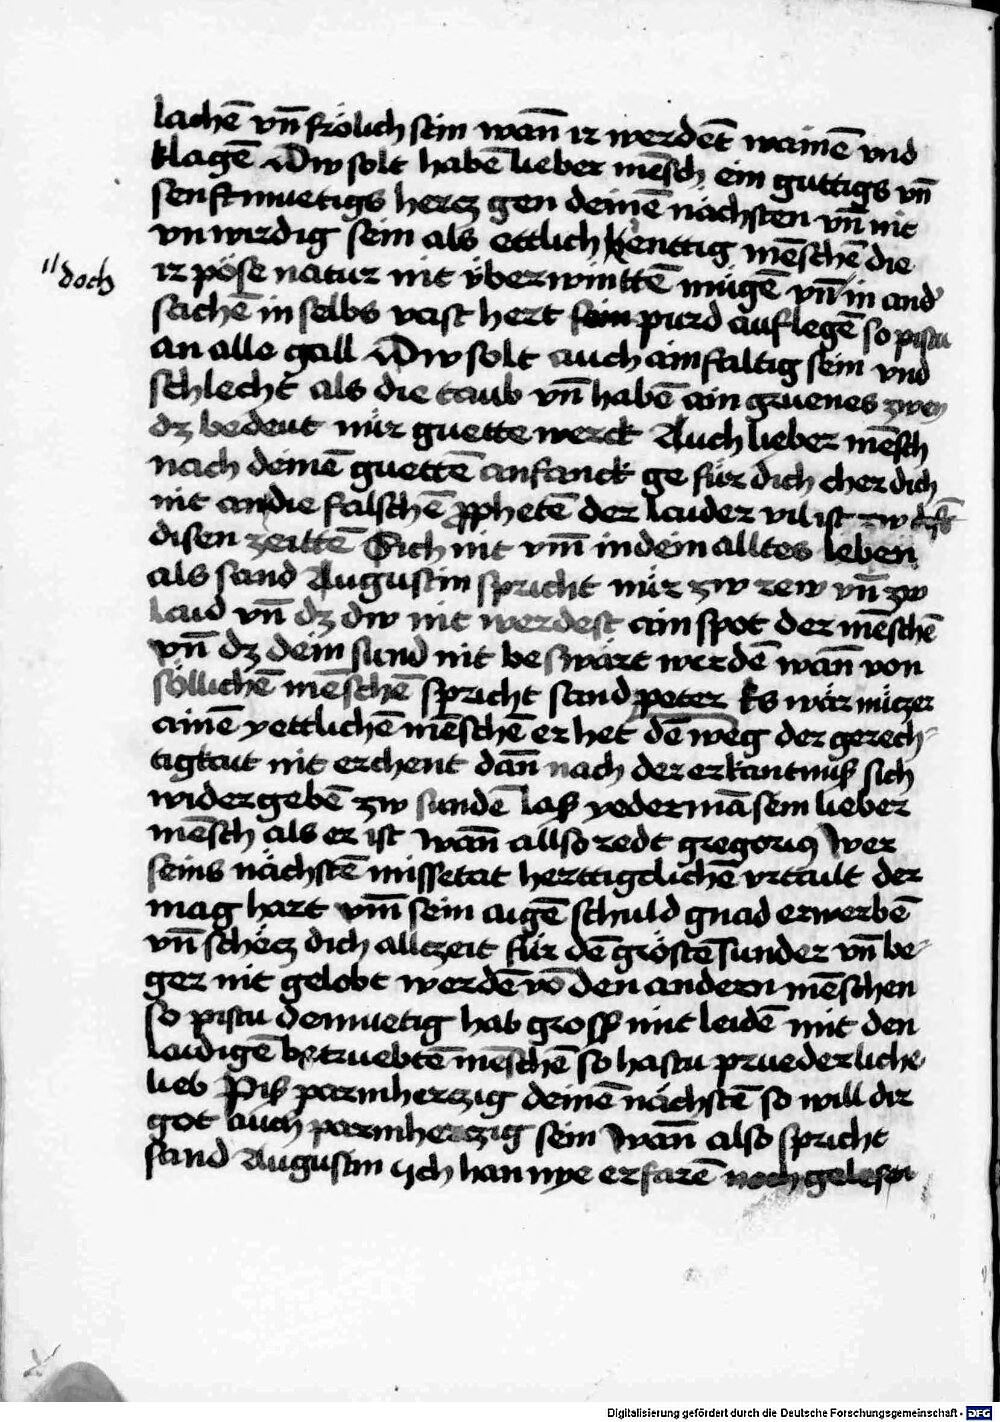 lachē vn̄ frölich sein wan̄ ir werdēt wainē vnd
klagē Dw solt habē lieber mēsch ein guttigs vn̄
senftmuetigs hercz gen deinē nächsten vn̄ nit
vnwirdig sein als ettlich kenttig mēschē die
doch
ir pöse natur nit v̈berwinttē mügē vn̄ in and̕
sachē in selbs vast hert sein purd auflegē so pistu
an alle gall Dw solt auch ainfaltig sein vnd
schlecht als die taub vn̄ habē ain gruenes zwey
dz bedeut nür guette werck Auch lieber mēsch
nach deinē guettē anfanck ge für dich cher dich
nit an die falschē pphetē der lauder vil ist zw
disen zeittē Sich nit vm̄ in dein alltes leben
als sand Augustin spricht nür zw rew vn̄ zw
laid vn̄ dz dw nit werdest ain spot der mēschē
vn̄ dz dein sund nit beswärt werdē wan̄ von
söllichē mēschē spricht sand peter Es wär nüczer
ainē yettlichē mēschē er het dē weg der gerech-
tigkait nit erchent dan̄ nach der erkantnuß sich
widergebē zw sundē laß yederman̄ sein lieber
mēsch als er ist wan̄ allso redt gregorius Wer
seins nächstē missetat herttigclichē vrtailt der
mag hart vm̄ sein aigē schuld gnad erwerbē
vn̄ schëcz dich allczeit für dē gröstē sunder vn̄ be-
ger nit gelobt werdē vō den andern mēschen
so pistu demuetig hab gross mit leidē mit den
laidigē betruebtē mēschē so hastu pruederliche
lieb Piß parmherczig deinē nächstē so will dir
got auch parmherczig sein Wan̄ also spricht
sand Augustin ich han nye erfarē noch gelesen